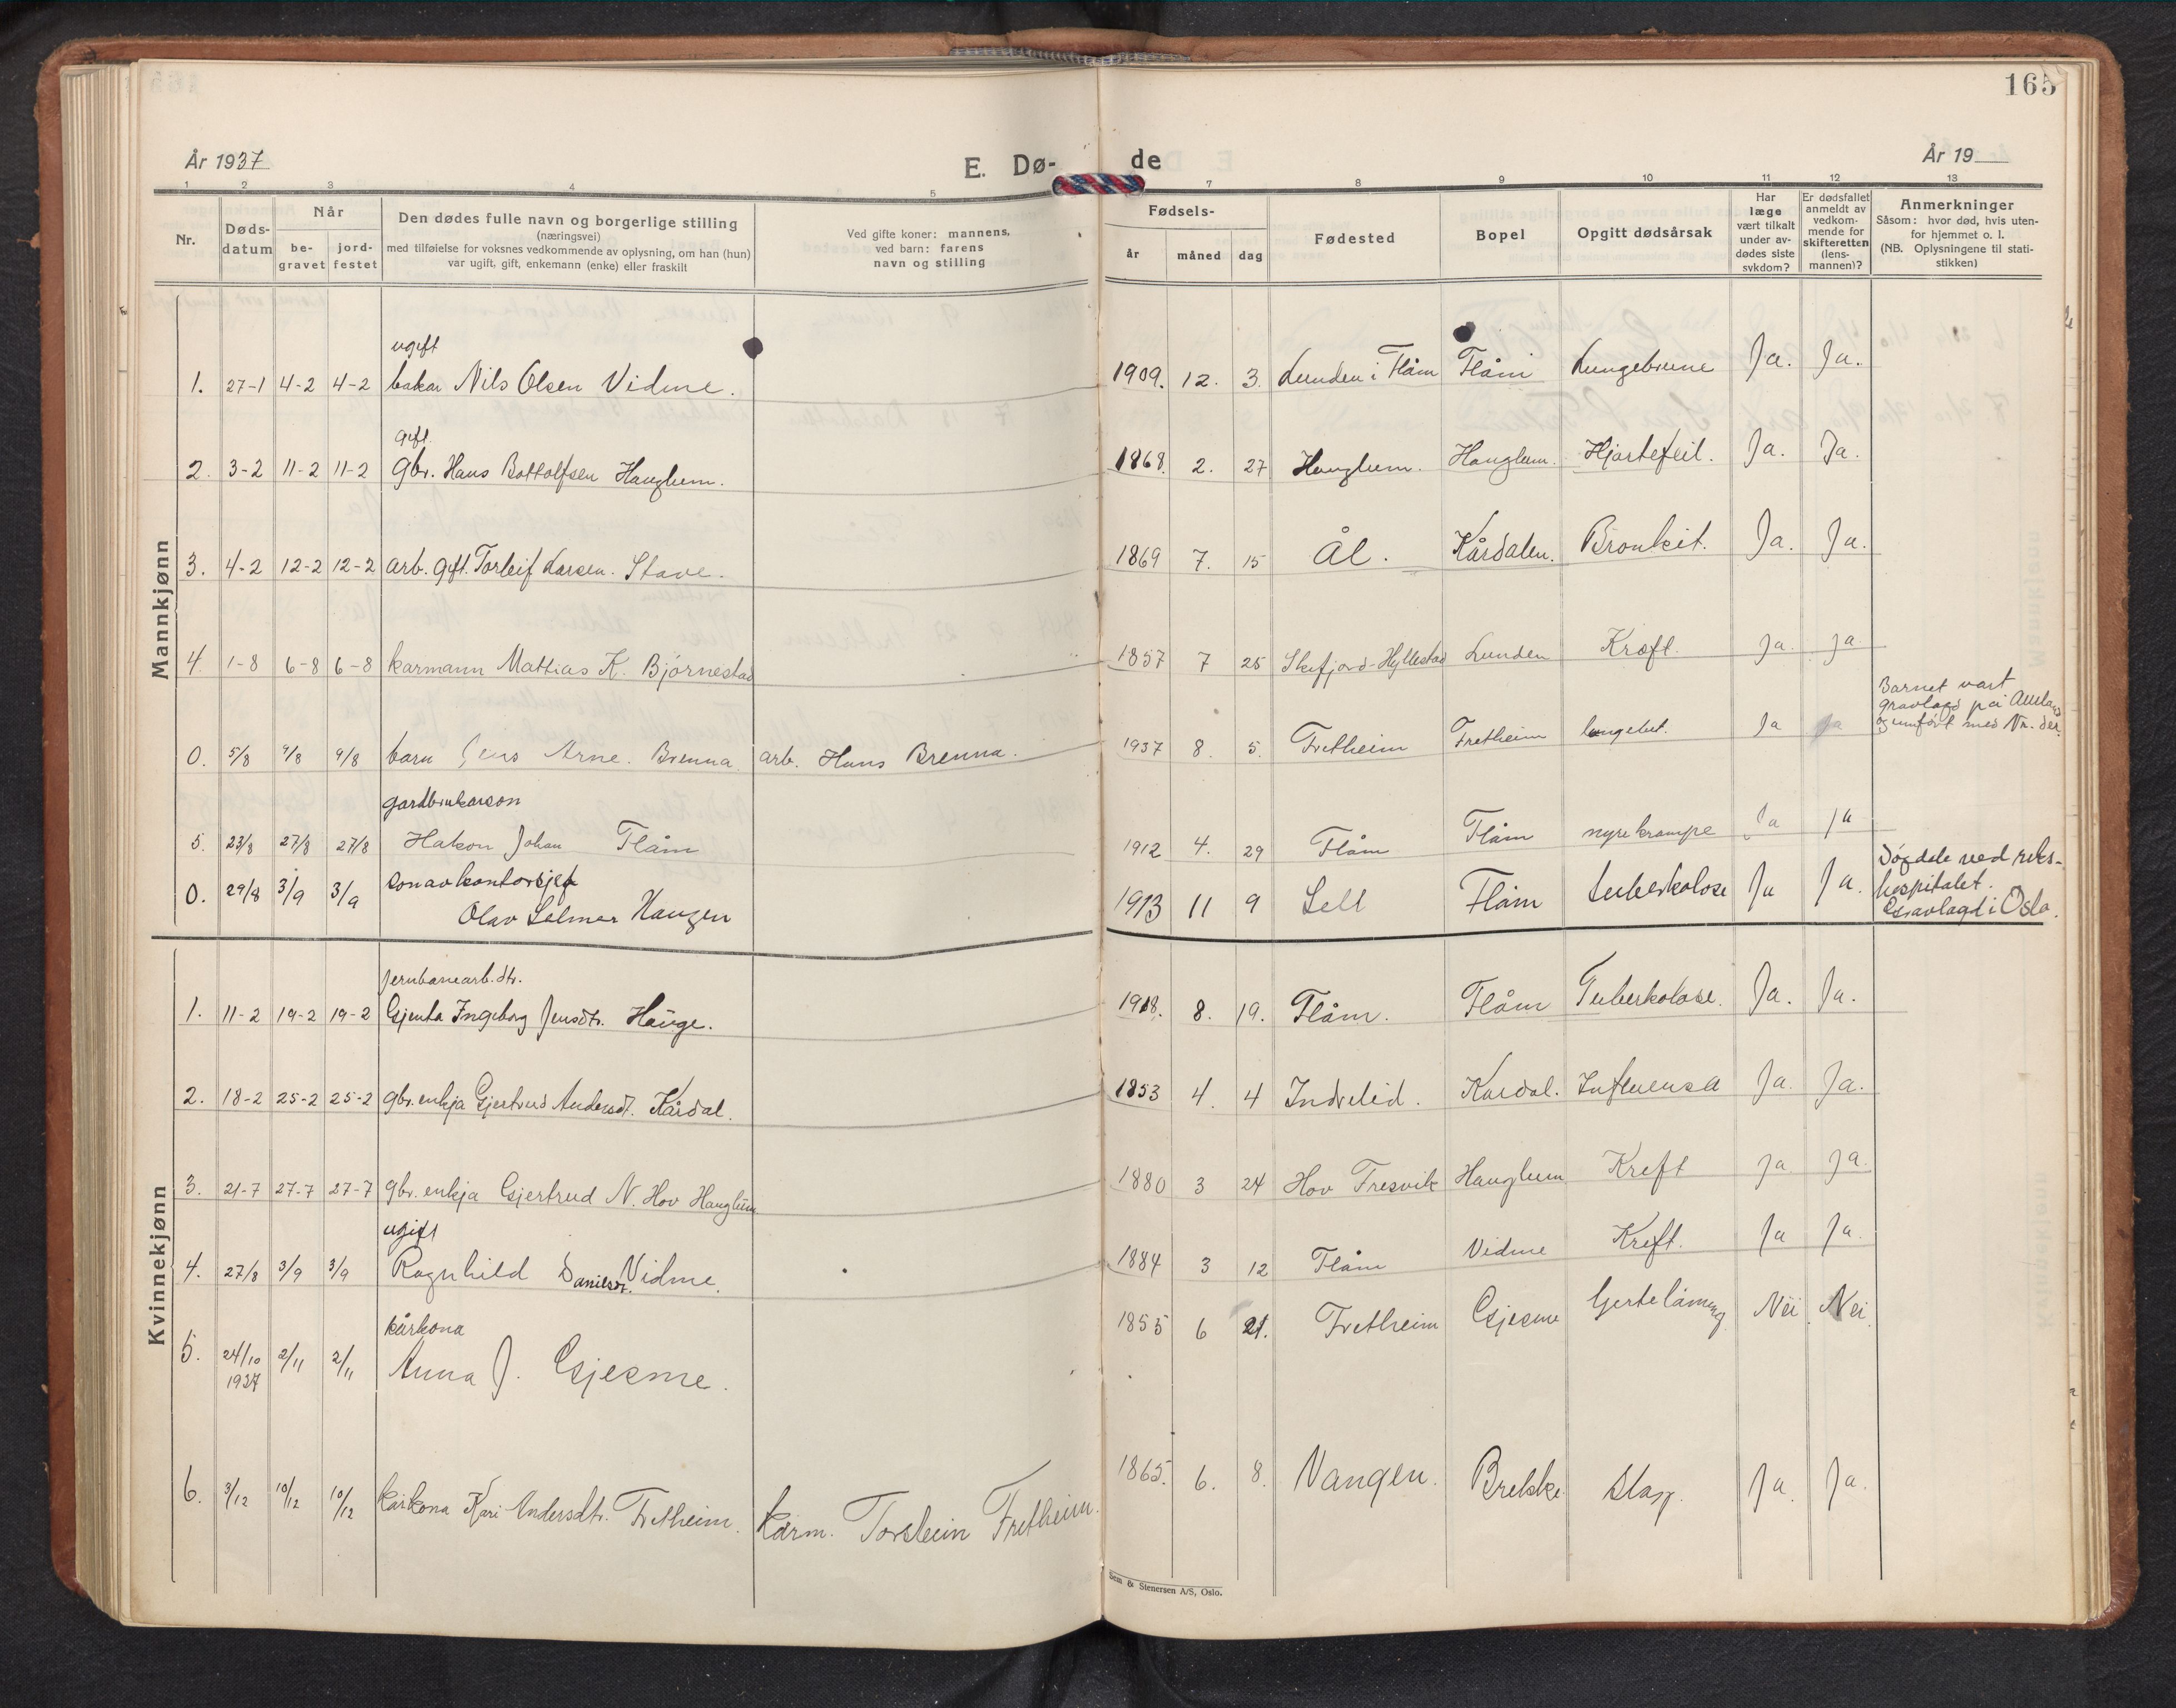 165
År 1937
E. Dø-
de
År 19
1 2 3 4 5 7 8 9 10 11 12 13
Nr.
Døds-
datum
Når
be-
gravet
jord-
festet
Den dødes fulle navn og borgerlige stilling
(næringsvei)
med tilføielse for voksnes vedkommende av oplysning, om han (hun)
var ugift, gift, enkemann (enke) eller fraskilt
Ved gifte koner: mannens,
ved barn: farens
navn og stilling
Fødsels-
år
måned
dag
Fødested
Bopel
Opgitt dødsårsak
Har
læge
vært tilkalt
under av-
dødes siste
sykdom?
Er dødsfallet
anmeldt av
vedkom-
mende for
skifteretten
(lens-
mannen)?
Anmerkninger
Såsom: hvor død, hvis uten-
for hjemmet o. l.
(NB. Oplysningene til stati-
stikken)
Mannkjønn
ugift
1. 27-1 4-2 4-2 bakar Nils Olsen Vidme. 1909. 12. 3. Lunden i Flåm Flåm Lungebrune Ja. Ja.
gift.
2. 3-2 11-2 11-2 gbr. Hans Bottolfsen Hauglum. 1868. 2. 27 Hauglum. Hauglum. Hjartefeil. Ja. Ja.
3. 4-2 12-2 12-2 arb. gift. Torleif Larsen. Stave. 1869 7. 15 Ål. Kårdalen. Bronkit. Ja. Ja.
4. 1-8 6-8 6-8 karmann Mattias K. Bjørnestad 1857 7 25 Skifjord-Hyllestad Lunden Kræft. Ja. Ja
Barnet vart
gravlagd på
umført med Nr. der.
0. 5/8 9/8 9/8 barn Jens Arne. Brenna. arb. Hans Brenna. 1937 8. 5. Fretheim Fretheim lungebet. Ja Ja
gardbrukarson
5. 23/8 27/8 27/8 Hakon Johan Flåm 1912 4. 29 Flåm Flåm nyrekrampe Ja Ja
son av kontorsjef
0. 29/8 3/9 3/9 Olav Selmer Haugen 1913 11 9 Sell Flåm tuberkolose Ja Ja.
Døydde ved riks-
hospitalet.
Gravlagd i Oslo.
Kvinnekjønn
Jernbanearb. dtr.
1. 11-2 19-2 19-2 Gjenta Ingeborg Jensdtr. Hauge. 1918. 8. 19. Flåm. Flåm Tuberkolose. Ja. Ja.
2. 18-2 25-2 25-2 gbr. enkja Gjertrud Andersdt. Kårdal. 1853 4. 4 Indrelid. Kardal. Influensa Ja. Ja.
3. 21-7 27-7 27-7 gbr. enkja Gjertrud N. Hov Hauglum 1880 3 24 Hov Fresvik Hauglum Kreft Ja. Ja.
ugift
4. 27/8 3/9 3/9 Ragnhild Danielsdt. Vidme. 1884 3 12 Flåm Vidme Kreft. Ja Ja.
kårkona
5. 24/10 1937 2/11 2/11 Anna J. Gjesme. 1855 6 21. Fretheim Gjesme hjertelåming Nei Nei
6. 3/12 10/12 10/12 kårkona Kari Andersdtr. Fretheim. Kårm. Torstein Fretheim. 1865. 6. 8. Vangen. Brekke slag. Ja. Ja.
Sem & Stenersen A/S, Oslo.